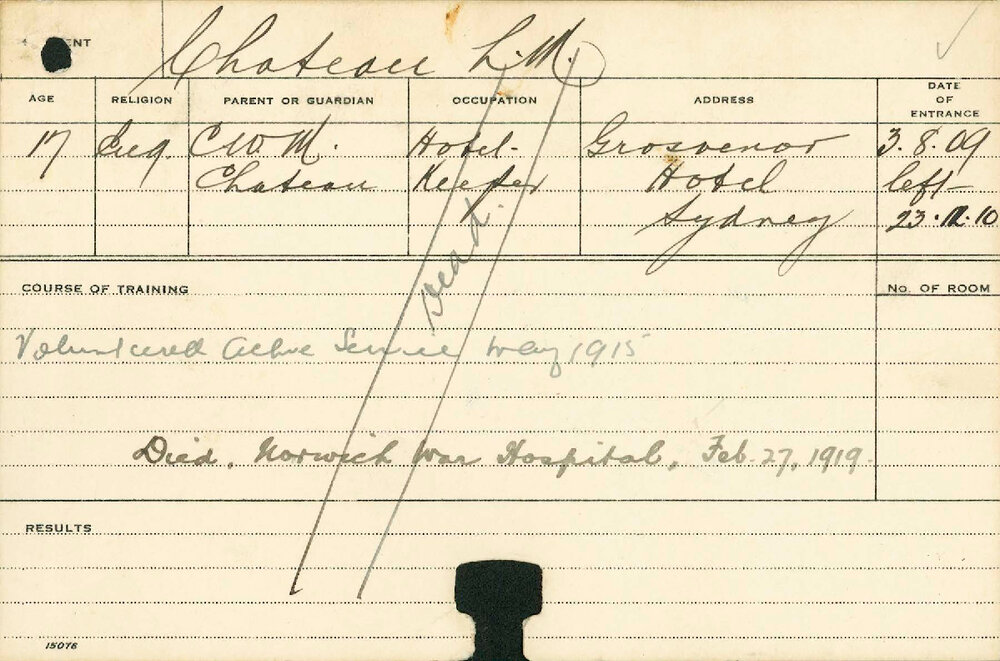 ENT
Chateau L.M.
AGE RELIGION PARENT OR GUARDIAN OCCUPATION ADDRESS DATE OF ENTRANCE
17 Eng. C W. M. Hotel- Grosvenor 3.8.09
Chateau Keeper Hotel left-
Sydney 23.12.10
Dead.
COURSE OF TRAINING No. OF ROOM
Volunteered Active Service May 1915
Died, Norwich War Hospital, Feb. 27, 1919.
RESULTS
15076